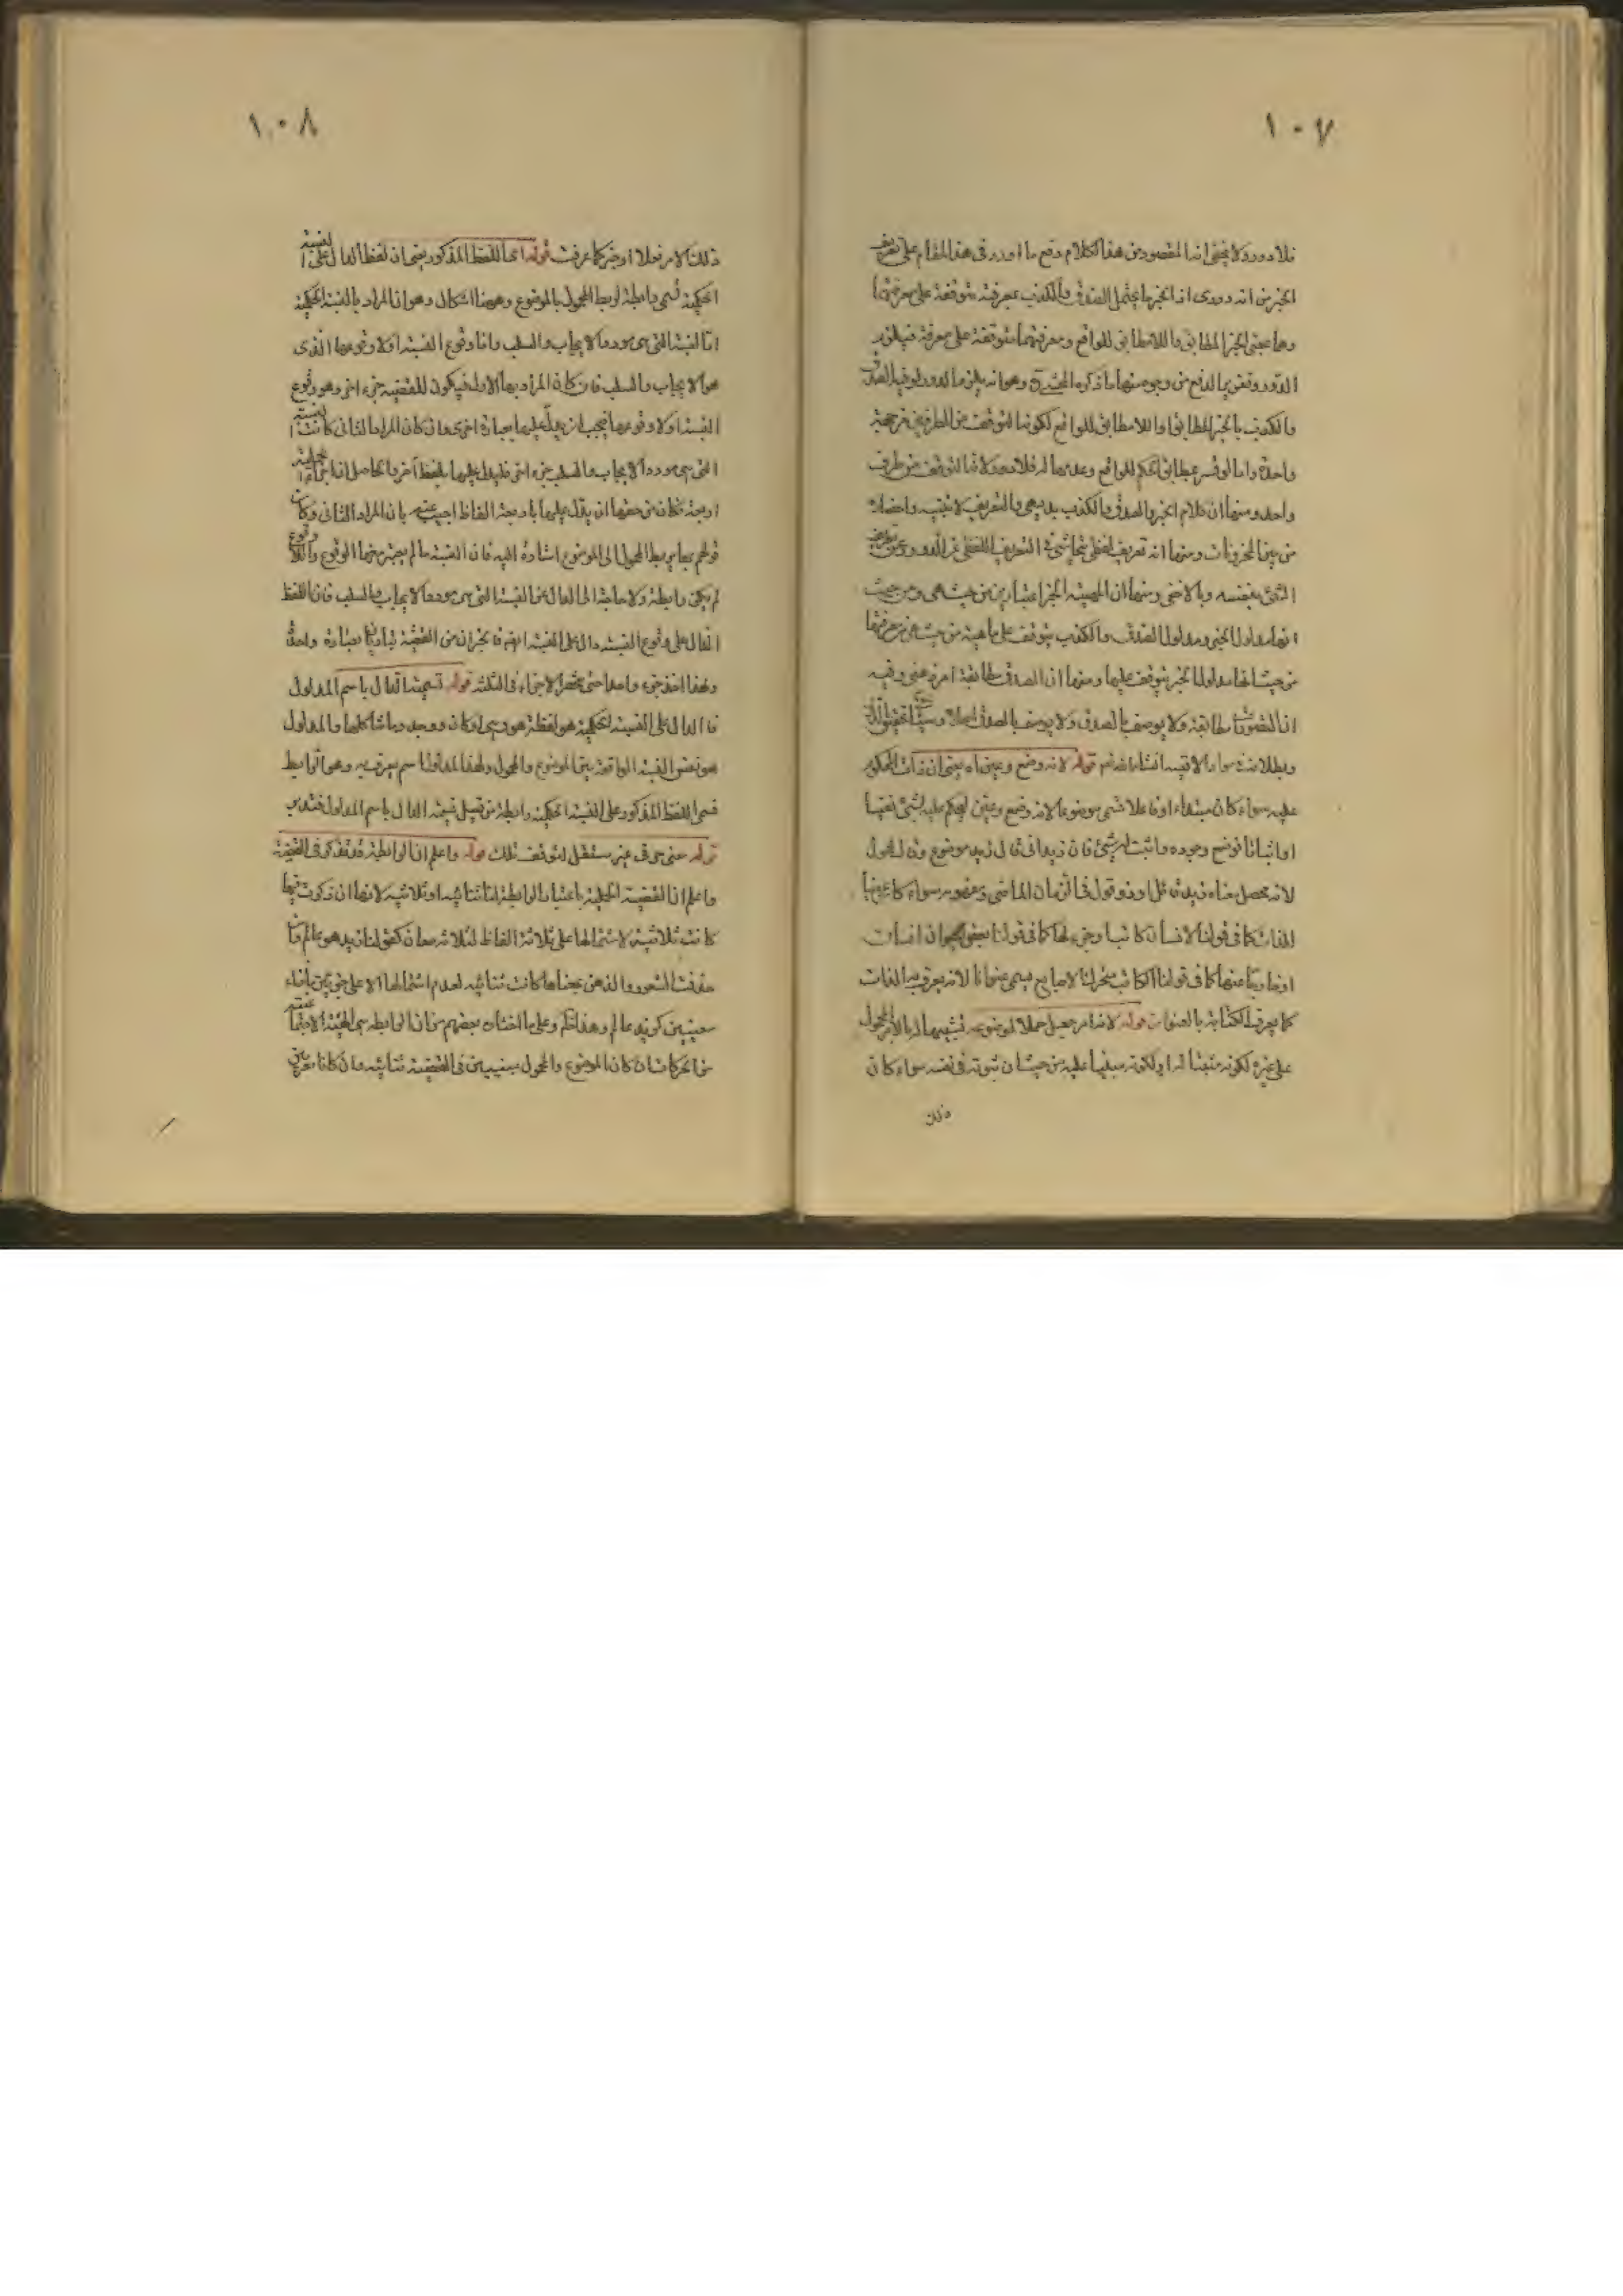 ١٠٧
فلا دور ولا يخفى ان المقصود من هذا الكلام دفع ما اورد فى هذا المقام على تعريف
الخبر من انه دورى اذ الخبر ما يحتمل الصدق والكذب بمعرفته متوقفة على معرفتهما
وهما بمعنى الخبر المطابق واللامطابق للواقع ومعرفتهما متوقفة على معرفة فيلزم
الدور وتقرير الدفع من وجوه منها ما ذكره المحشى وهو انه يلزم الدور لو فسر الصدق
والكذب بالخبر المطابق واللامطابق للواقع لكون التوقف من الطرفين من جهة
واحدة واما لو فسر بمطابق الحكم للواقع وعدمها له فلا دور لان التوقف من طرف
واحد ومنها ان علام الخبر والصدق والكذب بديهى والتعريف لا
من بين المخزونات ومنها انه تعريف لفظى التعريف اللفظى عن الدور وعن تعريف
الشئ بنفسه وبالاخفى ومنها ان الماهية الخبر اعتبارين من حيث هى ومن حيث
انها مدلول الخبر ومدلول الصدق والكذب يتوقف على ماهية من حيث هى ومعرفتها
من حيث انها مدلول الخبر يتوقف عليها ومنها ان الصدق مطابقة امر ذهنى وفيه
ان التصورات مطابقة ولا يوصف بالصدق ولا يوصف بالصدق اصلا
وبطلانه سواء الاتيه انشاء الله تعم قوله لانه وضع وعين اه يعنى ان ذات المحكوم
عليه سواء كان مبتداء او فاعلا تسمى موضوعا لانه وضع وعين ليحكم عليه بشئ نفيا
او اثباتا فوضح وجوده واثبت له شئ فان زيدا فى قال زيد موضوع وقال محمول
لانه محصل معناه زيد قال او ذو قول فى الزمان الماضى ومفهومه سواء كان عينا
للذات كما فى قولنا الانسان كاتب او جزء لها كما فى قولنا بعض الحيوان انسان
او خارجا عنها كما فى قولنا الكاتب متحرك الاصابع يسمى عنوانا لانه يعرف به الذات
كما يعرف الكتاب بالعنوان قوله لانه امر جعل حملا لموضوعه تشبيها له بالامر المحمول
على غيره لكونه مثبتا له او لكونه مبنيا عليه من حيث ان ثبوته فى نفسه سواء كان
ذلك
١٠٨
ذلك الامر فعلا او خبر كما عرفت قوله اما اللفظ المذكور يعنى ان لفظ الدال على النسبة
الحكمية تسمى رابطة لربط المحمول بالموضوع وههنا اشكال وهو ان المراد بالنسبة الحكمية
اما النسبة التى هى مورد الايجاب والسلب واما وقوع النسبة او لا وقوعها الذى
هو الايجاب والسلب فان كان المراد بها الاول فيكون للقضيه جزء اخر وهو وقوع
النسبة او لا وقوعها فيجب ان يدل عليها بعبارة اخرى وان كان المراد الثانى كانت النسبة
التى هى مورد الايجاب والسلب جزء اخر فليدل عليها بلفظ آخر والحاصل ان اجزاء الحملية
اربعة فكان من حقها ان يدل عليها باربعة الفاظ اجيب عنه بان المراد الثانى وكان
قولهم بها يربط المحمول الى الموضوع اشارة اليه فان النسبة ما لم يعتبر معها الوقوع واللاوقوع
لم يكن رابطة ولا حاجة الى الدال على النسبة التى هى مورد الايجاب والسلب فان اللفظ
الدال على وقوع النسبة دال على النسبة ايضا فالجزان من القضية تباديا بعبارة واحدة
ولهذا اخذ جزء واحدا حتى ينحصر الاجزاء فى الثلثة قوله تسمية الدال باسم المدلول
فالدال على النسبة الحكمية هو لفظة هو وهى او كان ووجد وما شاكلها والمدلول
هو نفس النسبة الواقعة بين الموضوع والمحمول ولهذا المدلول اسم يعرف به وهو الرابط
فسمى اللفظ المذكور على النسبة الحكمية رابطة من قبيل تسمية الدال باسم المدلول فتدبر
قوله معنى حرفى غير مستقل لتوقف تلك قوله واعلم ان الرابطة قد تذكر فى القضية
واعلم ان القضية الحملية باعتبار الرابطة اما ثنائيه او ثلاثيه لانها ان ذكرت فيها
كانت ثلاثية لاشتمالها على ثلاثة الفاظ لثلاثه معان كقولنا زيد هو عالم وان
حذفت الشعور الذهن بمعناها كانت ثنائيه لعدم اشتمالها الا على جزئين بازاء
معنيين كزيد عالم وهذا الحكم وعلى ما اختاره بعضهم من ان الرابطه هى الهيئة الاجتماعية
من الحركات ان كان الموضوع والمحمول مبنيين فى القضية ثنائيه وان كانا معربين